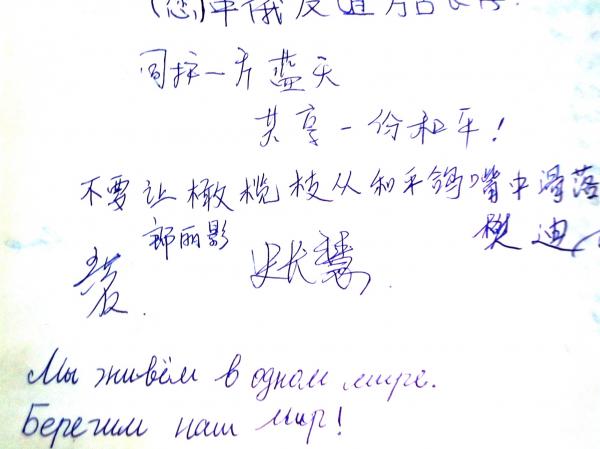 中俄友谊万古长存
同护一片蓝天
共享一份和平!
不要让橄榄枝从和平鸽嘴中滑落
郎丽影 樊迪
史长慧
Мы живём в одном мире.
Бережим наш мир!